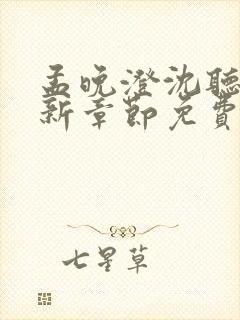 孟晚澄沈聽
新章節免費
七星草